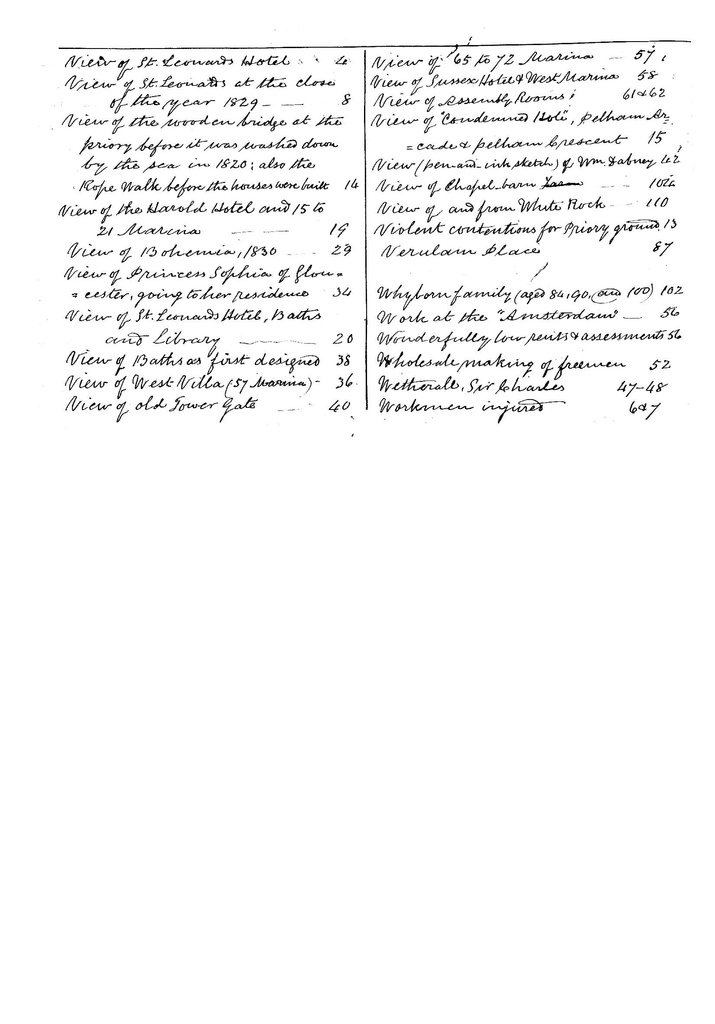 View of St. Leonards Hotel 4
View of St. Leonards at the close
of the year 1829 — 8
View of the wooden bridge at the
priory before it was washed down
by the sea in 1820; also the
Rope Walk before the houses were built 14
View of the Harold Hotel and 15 to
21 Marina — 19
View of Bohemia, 1830 — 29
View of Princess Sophia of Glou=
=cester, going to her residence 34
View of St. Leonards Hotel, Baths
and Library — 20
View of Baths as first designed 38
View of West Villa (57 Marina) - 36
View of old Tower Gate — 40
View of 65 to 72 Marina — 57
View of Sussex Hotel & West Marina 58
View of Assembly Rooms; 61 & 62
View of "Condemned Hole", Pelham Ar=
=cade & Pelham Crescent 15
View (pen-and-ink sketch) of Wm. Dabney 42
View of Chapel-barn — 102
View of and from White Rock — 110
Violent contentions for Priory ground 13
Verulam Place 87
Whyborn family (aged 84, 90, and 100) 102
Work at the "Amsterdam" — 56
Wonderfully low rents & assessments 56
Wholesale making of freemen 52
Wetherall, Sir Charles 47-48
Workmen injured 6 & 7